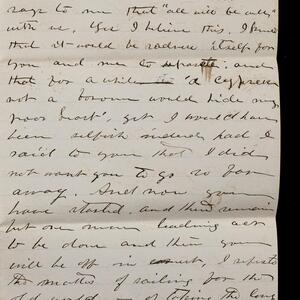 say to me that "all will be well"
with us. Yet I believe this. I
that it would be itself for
you and me to separate. and
that for a while "a cypress
not a would hide my
poor heart", yet I would have
been selfish indeed had I
said to you that I did
not want you to go so far
away. And now you
have started. and there remain
but one more leading act
to be done and then you
will be off in I
the matter of sailing for the
old world of the long